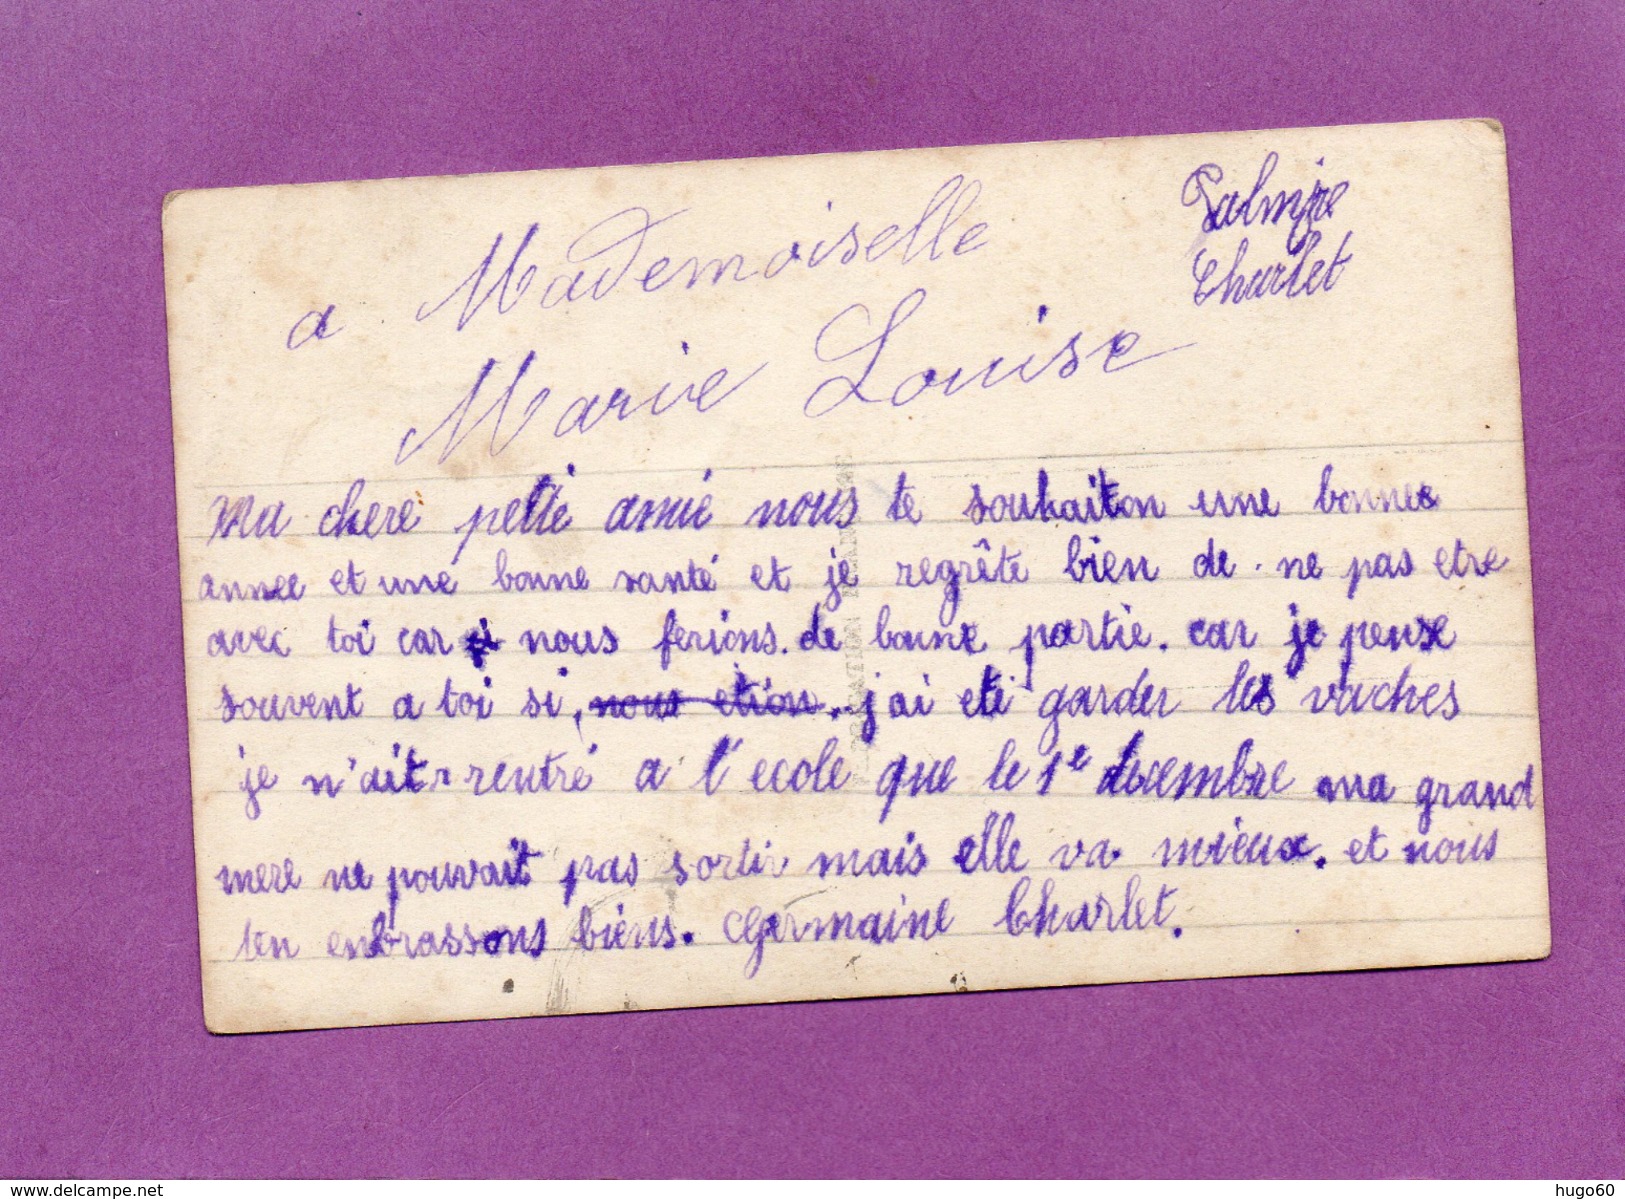 a Mademoiselle
Marie Louise
Palmyre
Charlet
Ma chere petite amie nous te souhaiton une bonnee
annee et une bonne santé et je regrête bien de ne pas etre
avec toi car si nous ferions de bonne partie. car je pense
souvent a toi si, nous etion. j'ai eté garder les vaches
je n'ait rentré a l'ecole que le 1e decembre ma grand
mere ne pouvait pas sortir mais elle va mieux. et nous
ten enbrassons biens. Germaine Charlet.
www.delcampe.net
hugo60